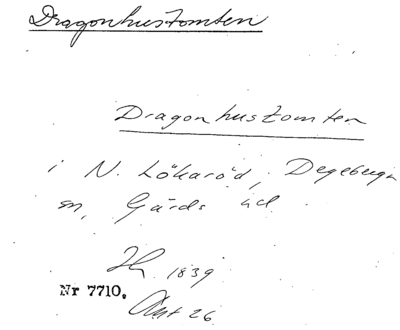 Dragonhustomten
Dragonhustomten
i N. Lökaröd, Degeberga
sn, Gärds hd
1839
Nr 7710.
Akt 26